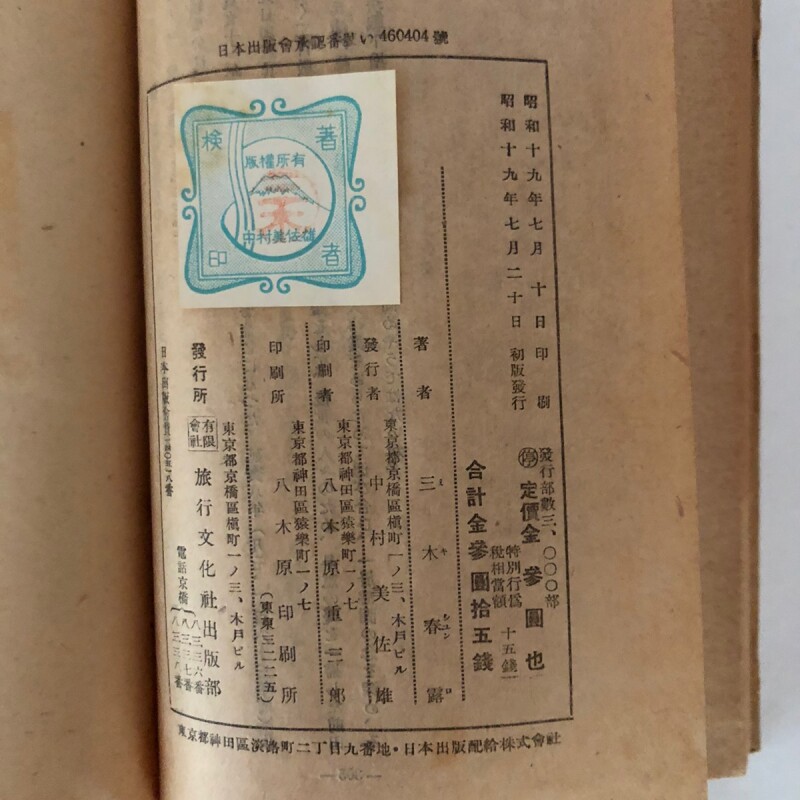 日本出版會承認番號い460404號
昭和十九年七月十日印刷
昭和十九年七月二十日初版發行
發行部數三、〇〇〇部
停定價金參圓也
特別行爲
税相當額
十五錢
合計金參圓拾五錢
著者 三木春露
ミキシユンロ
東京都京橋區槇町一ノ三、木戸ビル
發行者 中村美佐雄
東京都神田區猿樂町一ノ七
印刷者 八木原重三郎
東京都神田區猿樂町一ノ七
印刷所 八木原印刷所
(東東三二二五)
東京都京橋區槇町一ノ三、木戸ビル
發行所 有限會社 旅行文化社出版部
電話京橋
八三三六番
八三三七番
八三三八番
著者検印
版權所有
中村美佐雄
東京都神田區淡路町二丁目九番地・日本出版配給株式會社